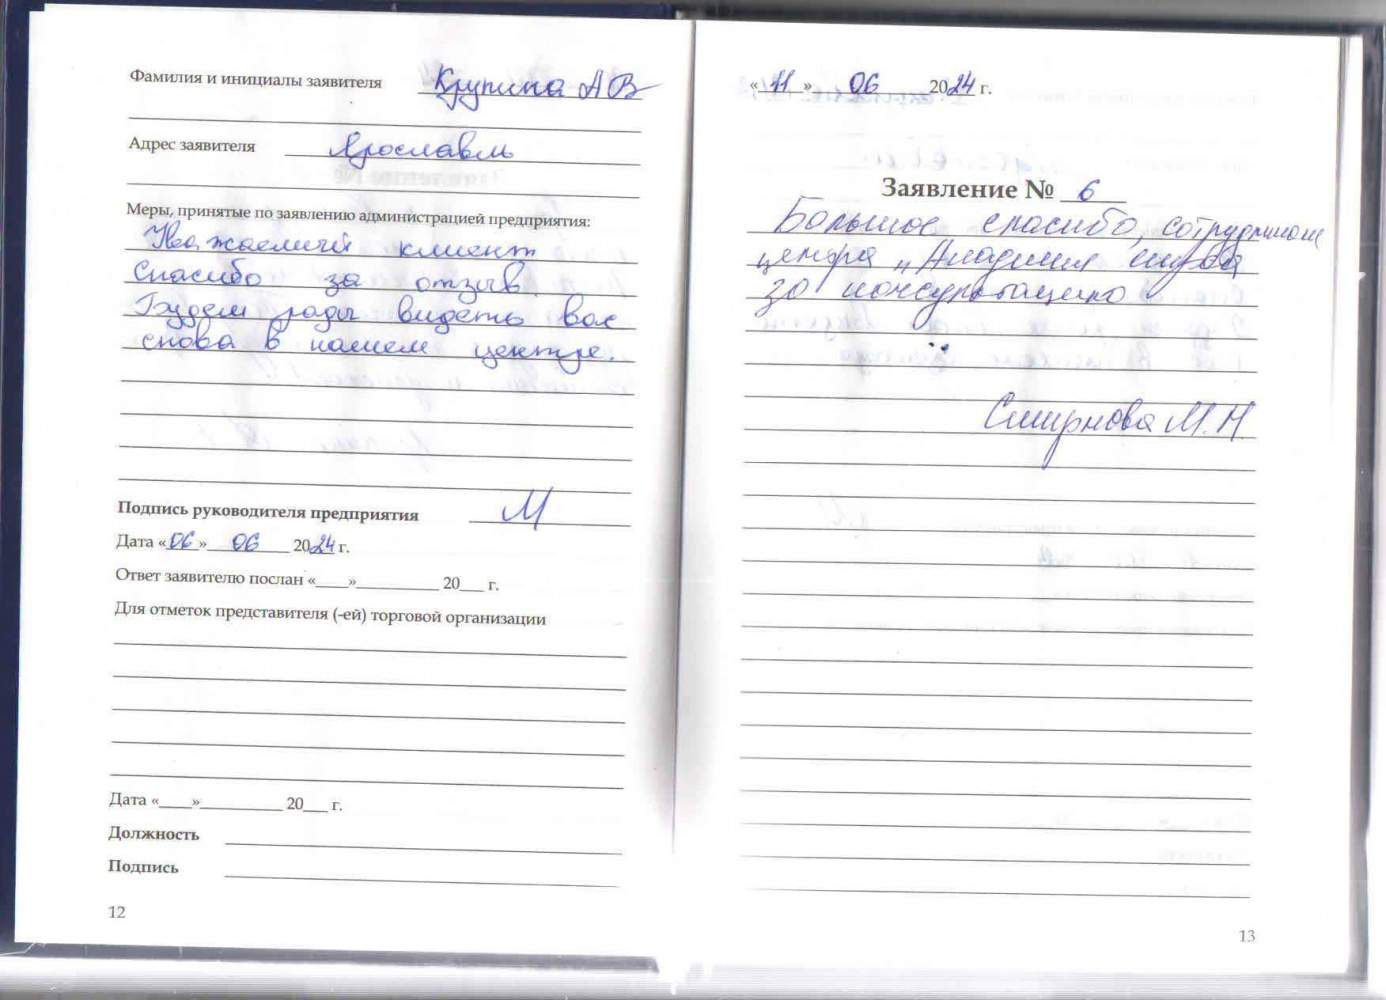 Фамилия и инициалы заявителя Крупина А В
Адрес заявителя Ярославль
Меры, принятые по заявлению администрацией предприятия:
Уважаемый клиент
Спасибо за отзыв.
Будем рады видеть вас
снова в нашем центре.
Подпись руководителя предприятия
Дата «06» 06 2024 г.
Ответ заявителю послан «____»__________ 20___ г.
Для отметок представителя (-ей) торговой организации
Дата «____»__________ 20___ г.
Должность
Подпись
12
«11» 06 2024 г.
Заявление № 6
Большое спасибо, сотрудникам
центра „Академия слуха
за консультацию
Смирнова М.Н
13